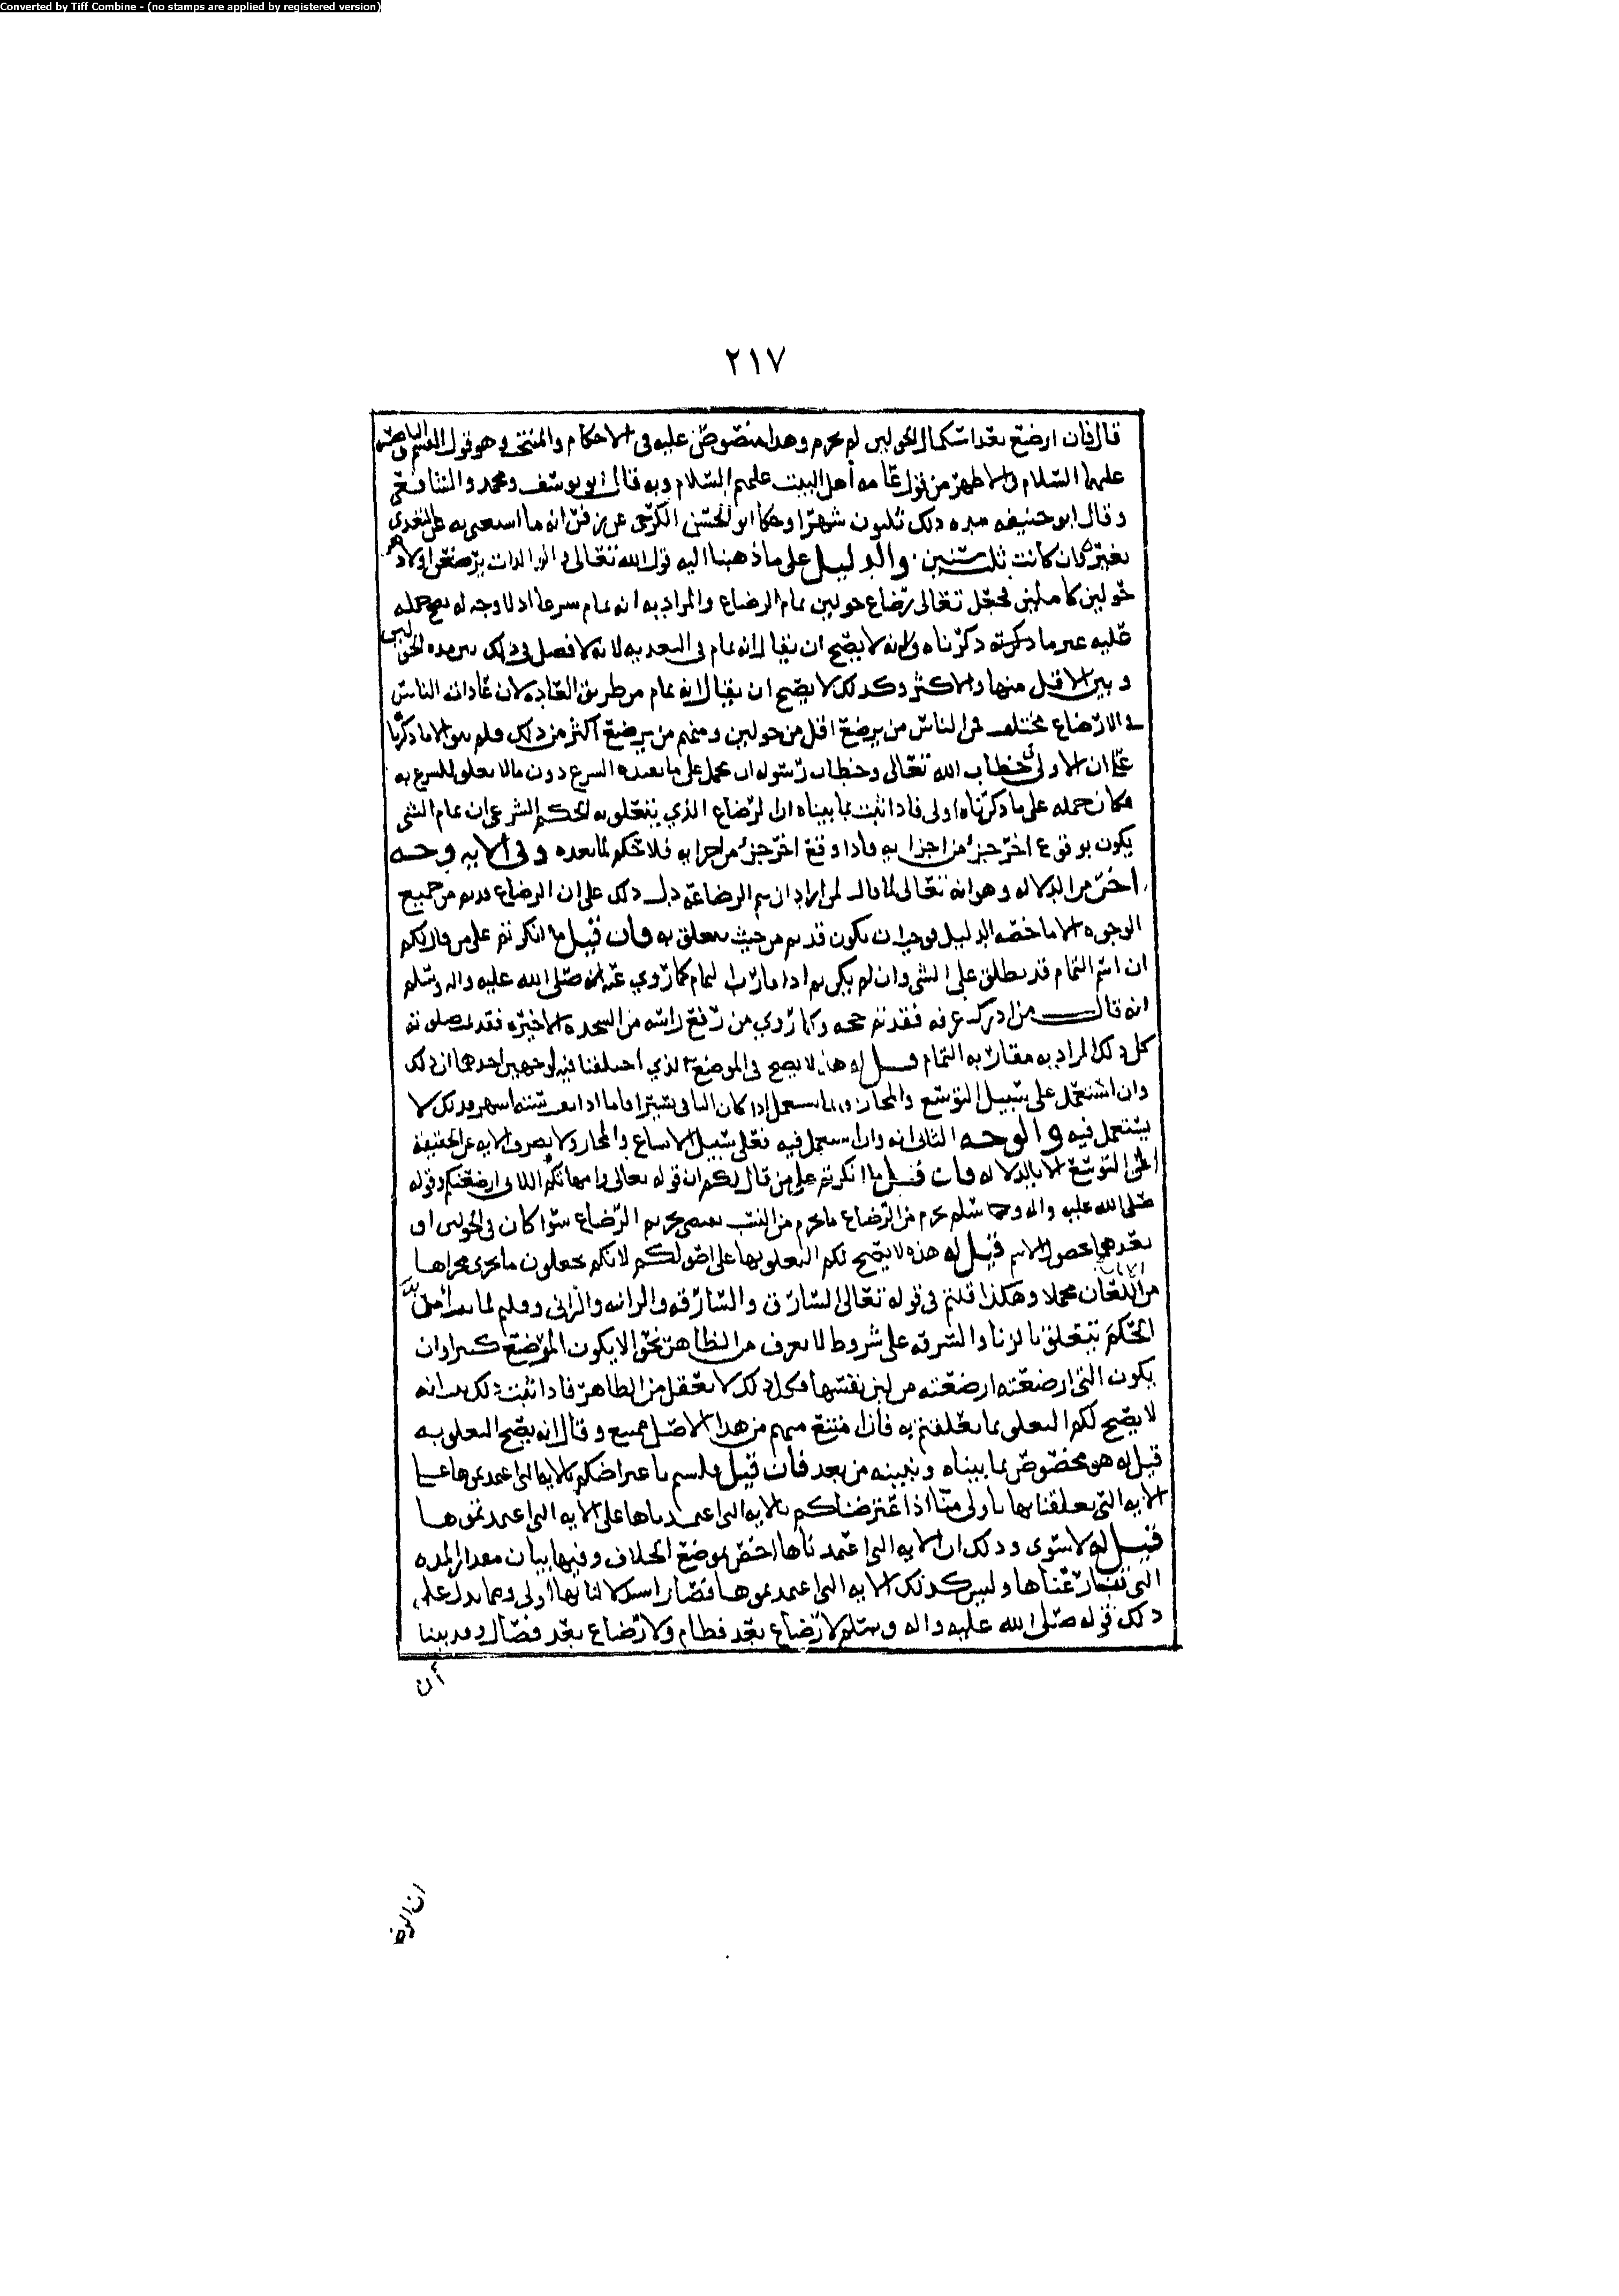 Converted by Tiff Combine - (no stamps are applied by registered version)
٢١٧
قال فان ارضع بعد استكمال الحولين لم يحرم وهدا منصوص عليه في الاحكام والمنتخب وهو قول القسم والناصر
عليهما السلام والاظهر من قول عامه أهل البيت عليهم السلام وبه قال ابو يوسف ومحمد والشافعي
وقال ابو حنيفه مده دلك ثلثون شهرا وحكا ابو الحسن الكرخي عن زفر انه ما استغنى به عن التغدي
بغيره وان كانت ثلث سنين والدليل على ما ذهبنا اليه قول الله تعالى والوالدات يرضعن اولادهن
حولين كاملين فجعل تعالى رضاع حولين تمام الرضاع والمراد به انه تمام شرعا اد لا وجه له يصح حمله
عليه غير ما ذكرناه ولانه لا يصح ان يقال انه تمام في التغديه لانه لا فصل في ذلك بين مده الحولين
وبين الاقل منها والاكثر وكدلك لا يصح ان يقال انه تمام من طريق العاده لان عادات الناس
في الارضاع مختلف فمن الناس من يرضع اقل من حولين ومنهم من يرضع اكثر من ذلك فلم يبق الا ما ذكرنا
على ان الاولى في خطاب الله تعالى وخطاب رسوله ان يحمل على ما يفيده الشرع دون مالا تعلق للشرع به
فكان حمله على ما ذكرناه اولى فادا ثبت بما بيناه ان الرضاع الذي يتعلق به الحكم الشرعي ان تمام الشي
يكون بوقوع اخر جزء من اجزايه فادا وقع اخر جزء من اجزايه فلا حكم لما بعده وفي الايه وجه
اخر من الدلاله وهو انه تعالى لما قال لمن اراد ان يتم الرضاعه دل دلك على ان الرضاع قد تم من جميع
الوجوه الا ما خصه الدليل فوجب ان يكون قد تم من حيث يتعلق به فان قيل ما انكرتم على من قال لكم
ان اسم التمام قد يطلق على الشي وان لم يكن تم ادا قارب التمام كما روي عنه صلى الله عليه واله وسلم
انه قال من ادرك عرفه فقد تم حجه وكما روي من رفع راسه من السجده الاخيره فقد تمت صلوته
كل دلك المراد به مقاربه التمام قيل له هذا لا يصح في الموضع الذي اختلفنا فيه لوجهين احدهما ان ذلك
وان استعمل على سبيل التوسع والمجاز فانما يستعمل إدا كان الباقي يسيرا فاما ادا بقي سته اشهر فدلك لا
يستعمل فيه والوجه الثاني انه وان استعمل فيه فعلى سبيل الاتساع والمجاز ولا يصرف الايه عن الحقيقه
الى التوسع الا بالدلاله فان قيل ما انكرتم على من قال لكم ان قوله تعالى وامهاتكم اللاتي ارضعنكم وقوله
صلى الله عليه واله وسلم يحرم من الرضاع ما يحرم من النسب يقتضي تحريم الرضاع سوا كان في الحولين او
بعدهما لحصول الاسم قيل له هذه لا يصح لكم التعلق بها على اصولكم لانكم تجعلون ما جرى مجراها
من مجملا وهكذا قلتم في قوله تعالى السارق والسارقه والزانيه والزاني وقلتم لما
الحكم يتعلق بالزنا والسرقه على شروط لا يعرف من الظاهر نحو الا يكون الموضع كبيرا وان
يكون التي ارضعته ارضعته من لبن نفسها وكل ذلك لا يعقل من الظاهر فادا ثبت دلك انه
لا يصح لكم التعلق بما تعلقتم به فان امتنع منهم من هدا الاصل ممتنع وقال انه يصح التعلق به
قيل له هو مخصوص بما بيناه ونبينه من بعد فان قيل فلستم باعتراضكم بالايه التي اعتمدتموها على
الايه التي تعلقنا بها باولى منا اذا اعترضناكم بالايه التي اعتمدناها على الايه التي اعتمدتموها
قيل له لا سوى ودلك ان الايه التي اعتمدناها اخص بموضع الخلاف وفيها بيان مقدار المده
التي تنازعناها وليس كدلك الايه التي اعتمدتموها فصار استدلالنا بها أولى ومما يدل على
دلك قوله صلى الله عليه واله وسلم لا رضاع بعد فطام ولا رضاع بعد فصال وقد بينا
أن
ان الرض